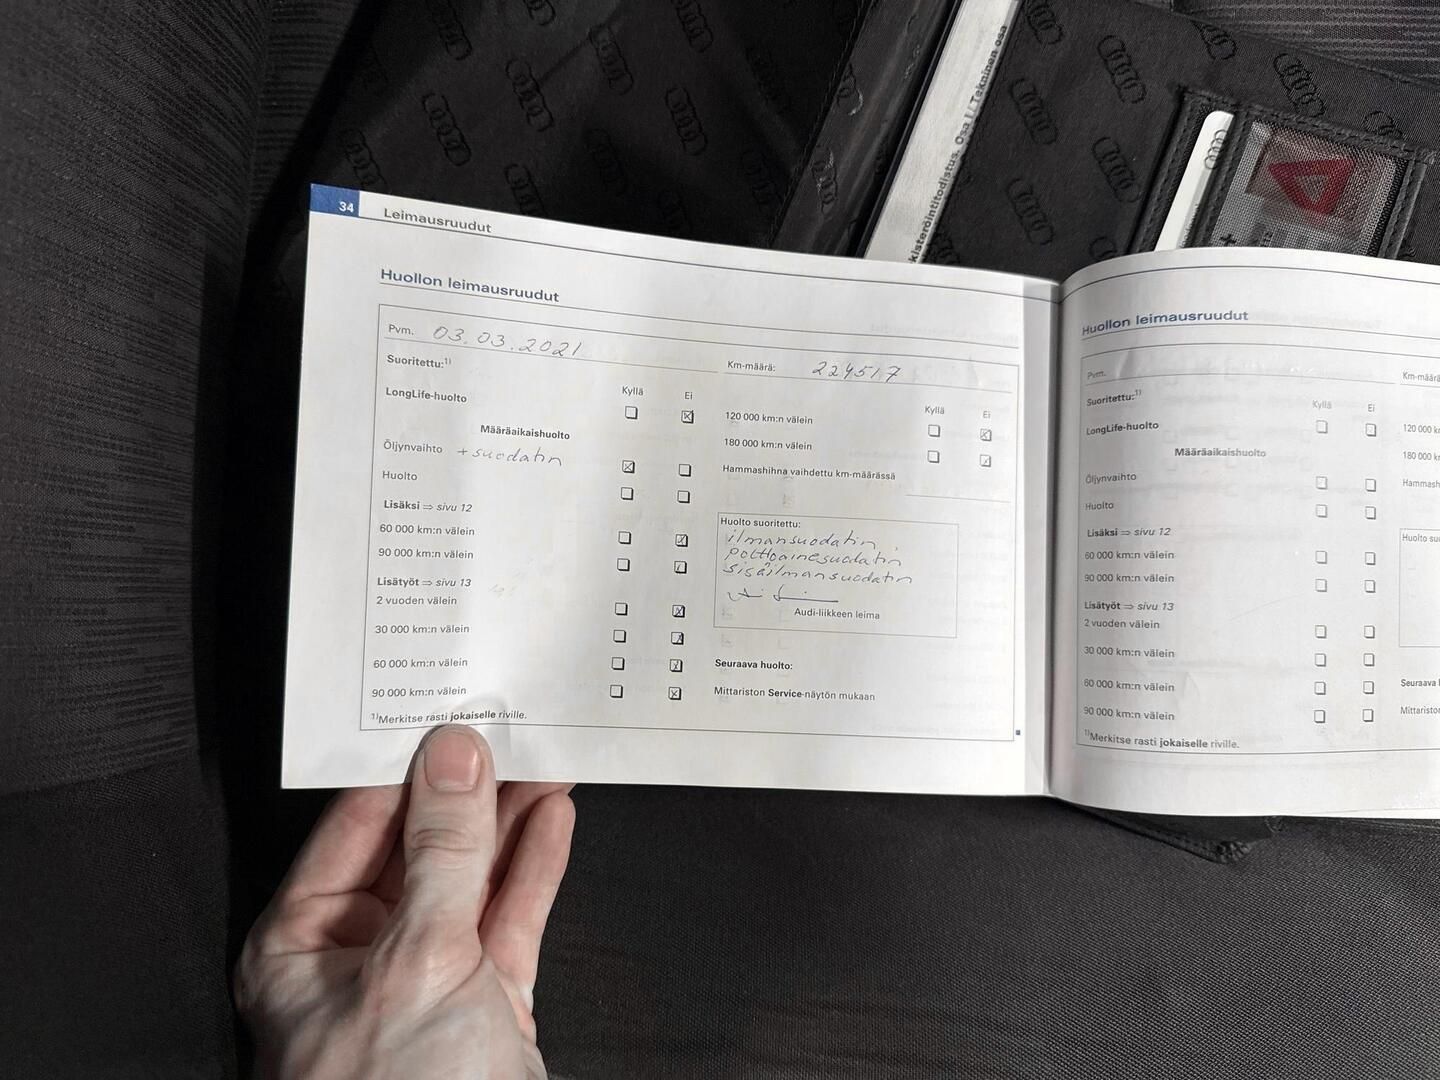 kisteröintitodistus. Osa I / Tekninen osa
34 Leimausruudut
Huollon leimausruudut
Pvm. 03.03.2021
Km-määrä: 224517
Suoritettu:1)
Kyllä Ei
LongLife-huolto
Määräaikaishuolto
Öljynvaihto + suodatin
Huolto
Lisäksi ⇒ sivu 12
60 000 km:n välein
90 000 km:n välein
Lisätyöt ⇒ sivu 13
2 vuoden välein
30 000 km:n välein
60 000 km:n välein
90 000 km:n välein
1)Merkitse rasti jokaiselle riville.
Kyllä Ei
120 000 km:n välein
180 000 km:n välein
Hammashihna vaihdettu km-määrässä
Huolto suoritettu:
ilmansuodatin,
polttoainesuodatin
sisäilmansuodatin
Audi-liikkeen leima
Seuraava huolto:
Mittariston Service-näytön mukaan
Huollon leimausruudut
Pvm.
Suoritettu:1)
Kyllä Ei
LongLife-huolto
Määräaikaishuolto
Öljynvaihto
Huolto
Lisäksi ⇒ sivu 12
60 000 km:n välein
90 000 km:n välein
Lisätyöt ⇒ sivu 13
2 vuoden välein
30 000 km:n välein
60 000 km:n välein
90 000 km:n välein
1)Merkitse rasti jokaiselle riville.
Km-määrä
120 000 k
180 000 k
Hammash
Huolto suo
Seuraava h
Mittariston